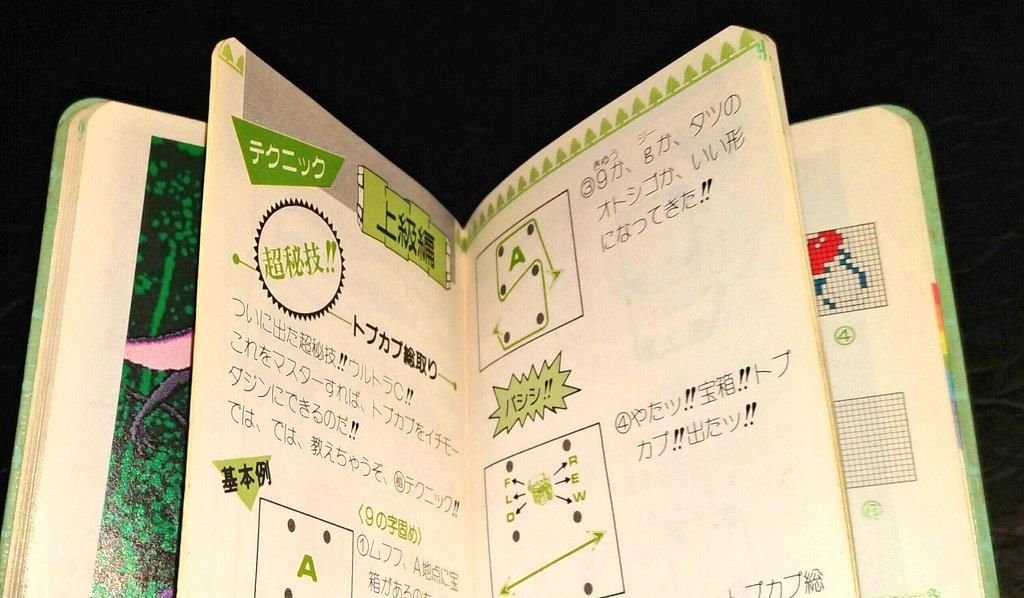 テクニック
上級編
超秘技!!
トブカブ総取り
ついに出た超秘技!!ウルトラC!!
これをマスターすれば、トブカブをイチモー
ダジンにできるのだ!!
では、では、教えちゃうぞ、㊙テクニック!!
基本例
〈9の字固め〉
①ムフフ、A地点に宝
箱があるのだ
A
きゅう ジー
③9か、gか、タツの
オトシゴか、いい形
になってきた!!
A
バシシ!!
④やたッ!!宝箱!!トブ
カブ!!出たッ!!
F
L
O
R
E
W
トブカブ総
④